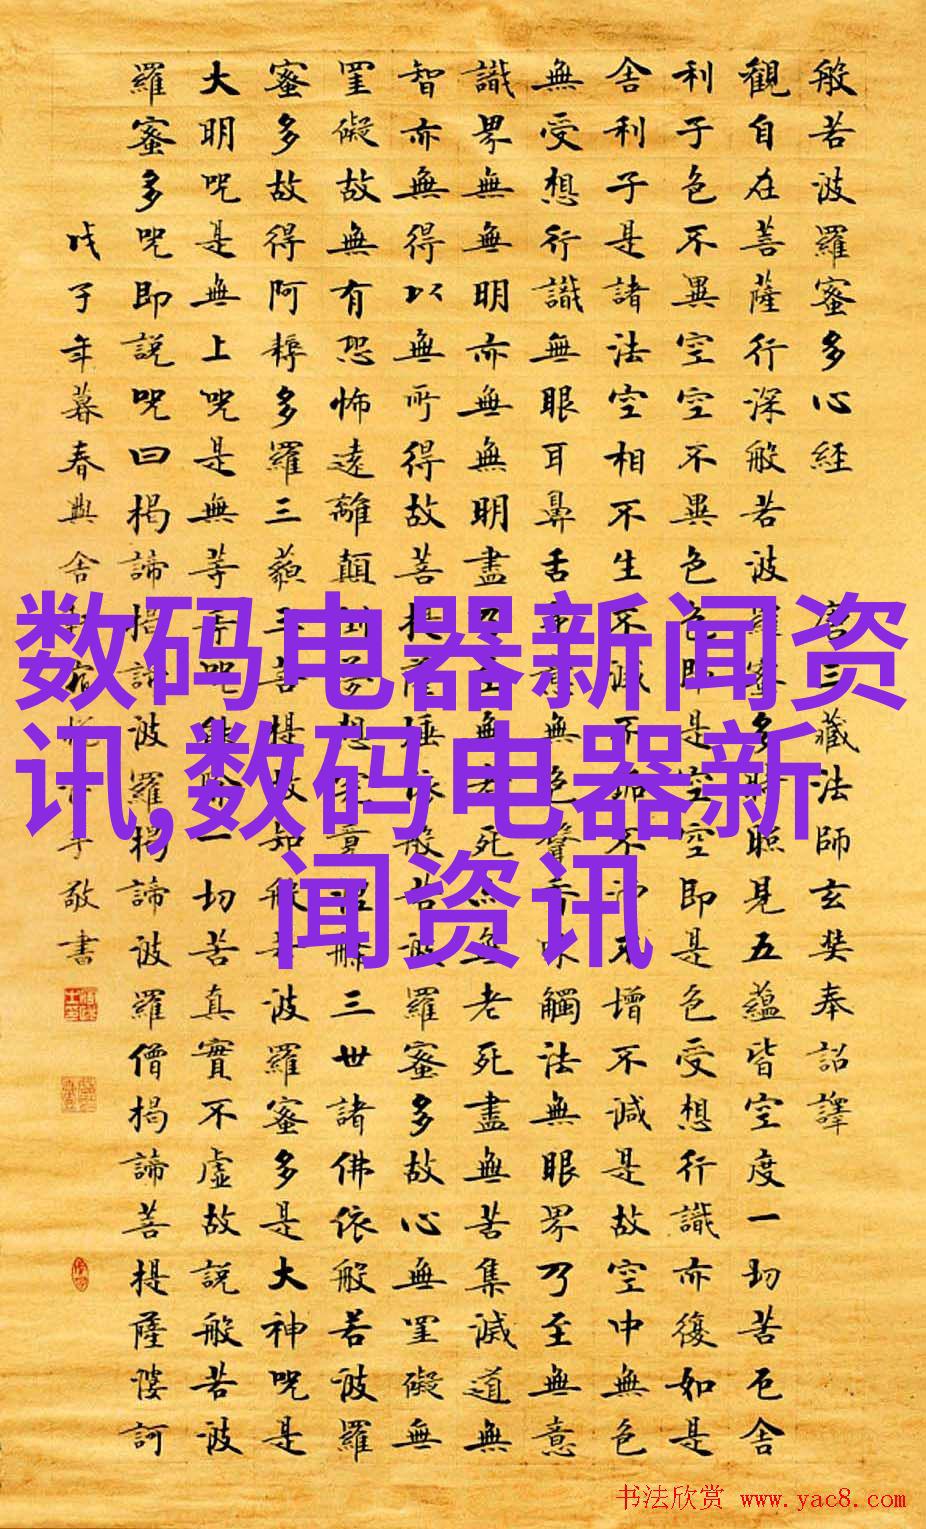 般若波羅蜜多心經 唐三藏法師玄奘奉詔譯
觀自在菩薩行深般若波羅蜜多時照見五蘊皆空度一切苦厄舍
利子色不異空空不異色色即是空空即是色受想行識亦復如是
舍利子是諸法空相不生不滅不垢不淨不增不減是故空中無色
無受想行識無眼耳鼻舌身意無色聲香味觸法無眼界乃至無意
識界無無明亦無無明盡乃至無老死亦無老死盡無苦集滅道無
智亦無得以無所得故菩提薩埵依般若波羅蜜多故心無罣礙無
罣礙故無有恐怖遠離顛倒夢想究竟涅槃三世諸佛依般若波羅
蜜多故得阿耨多羅三藐三菩提故知般若波羅蜜多是大神咒是
大明咒是無上咒是無等等咒能除一切苦真實不虛故說般若波
羅蜜多咒即說咒曰揭諦揭諦波羅揭諦波羅僧揭諦菩提薩婆訶
戊子年暮春與舍敬書
数码电器新闻资
讯,数码电器新
闻资讯
书法欣赏 www.yac8.com